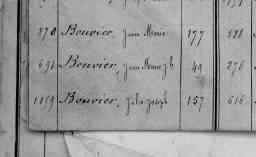 870 Bouvier, Jean Marie 177
691 Bouvier, Jean Marie Jh 49 276
1159 Bouvier, Jules Joseph 157 616